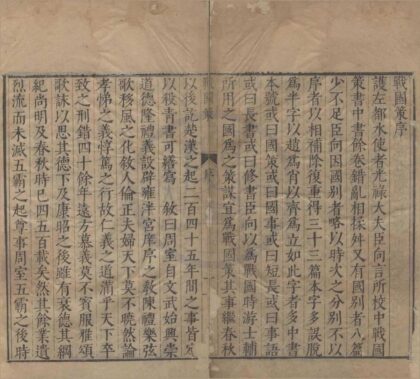 戰國策序
護左都水使者光祿大夫臣向言所校中戰國
策書中書餘卷錯亂相揉舛又有國別者八篇
少不足臣向因國別者略以時次之分別不以
序者以相補除復重得三十三篇本字多誤脫
為半字以趙為肖以齊為立如此字者多中書
本號或曰國策或曰國事或曰短長或曰事語
或曰長書或曰修書臣向以為戰國時游士輔
所用之國為之策謀宜為戰國策其事繼春秋
戰國策 序
以後訖楚漢之起二百四十五年間之事皆定
以殺青書可繕寫 敘曰周室自文武始興崇
道德隆禮義設辟雍泮宮庠序之教陳禮樂弦
歌移風之化敘人倫正夫婦天下莫不曉然論
孝悌之義惇篤之行故仁義之道滿乎天下卒
致之刑錯四十餘年遠方慕義莫不賓服雅頌
歌詠以思其德下及康昭之後雖有衰德其綱
紀尚明及春秋時已四五百載矣然其餘業遺
烈流而未滅五霸之起尊事周室五霸之後時